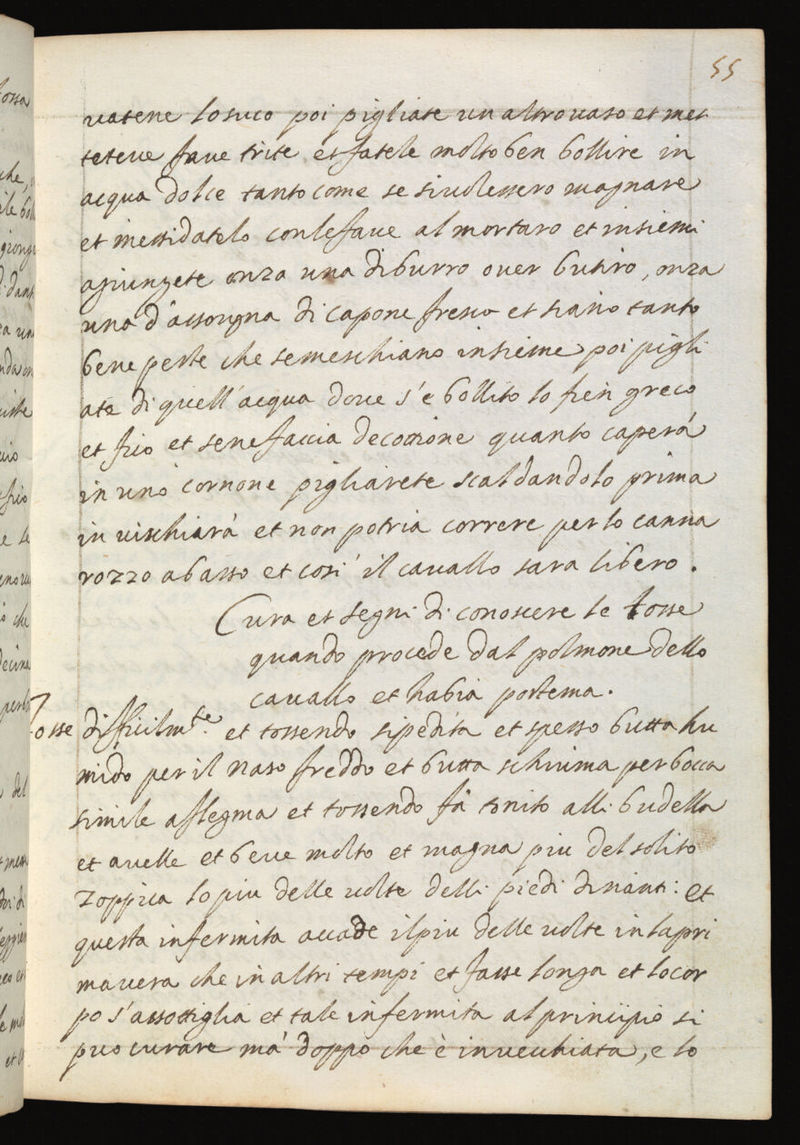 55
vatene lo suco poi pigliate un altro vaso et met
teteve fave trite et fatele molto ben bollire in
acqua dolce tanto come se si volessero magnare
et messidatelo con le fave al mortaro et insiemi
agiungete onza una di burro over butiro, onza
una d'assongna di capone fresco et siano tanto
bene peste che se meschiano insieme poi pigli
ate di quell'acqua dove s'è bollito lo fien greco
et fico et se ne faccia decottione quanto caperà
in uno cornone pigliarete scaldandolo prima
in vischiarà et non potria correre per lo canna
rozzo abasso et cosi il cavallo sara libero.
Cura et segni di conoscere le tosse
quando procede dal polmone dello
cavallo et habia postema.
Tosse difficilm.te et tossendo si pedita et spesso butta hu
mido per il naso freddo et butta schiuma per bocca
simile a flegma et tossendo fà tonito alli budella
et avelle et beve molto et magna piu del solito
Zoppica lo piu delle volte delli piedi dinanti: et
questa infermita accade il piu delle volte in la pri
mavera che in altri tempi et fasse longa et lo cor
po s'assottiglia et tale infermita al principio si
puo curare mà doppo che è invecchiata, e lo